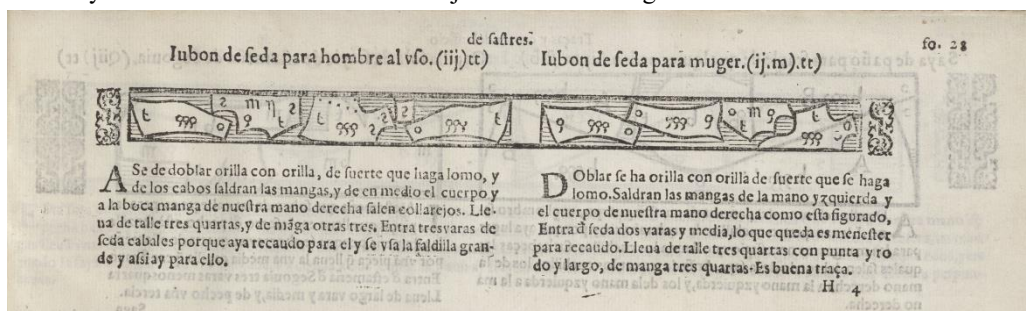 de sastres.
fo. 28
Iubon de seda para hombre al vso. (iij) tt)
A Se de doblar orilla con orilla, de suerte que haga lomo, y
de los cabos saldran las mangas, y de en medio el cuerpo y
a la boca manga de nuestra mano derecha salen collarejos. Lle-
na de talle tres quartas, y de mãga otras tres. Entra tres varas de
seda cabales porque aya recaudo para el y se vsa la faldilla gran-
de y assi ay para ello.
Iubon de seda para muger. (ij.m). tt)
DOblar se ha orilla con orilla de suerte que se haga
lomo. Saldran las mangas de la mano yzquierda y
el cuerpo de nuestra mano derecha como esta figurado,
Entra d seda dos varas y media, lo que queda es menester
para recaudo. Lleua de talle tres quartas con punta y to
do y largo, de manga tres quartas. Es buena traça.
H 4